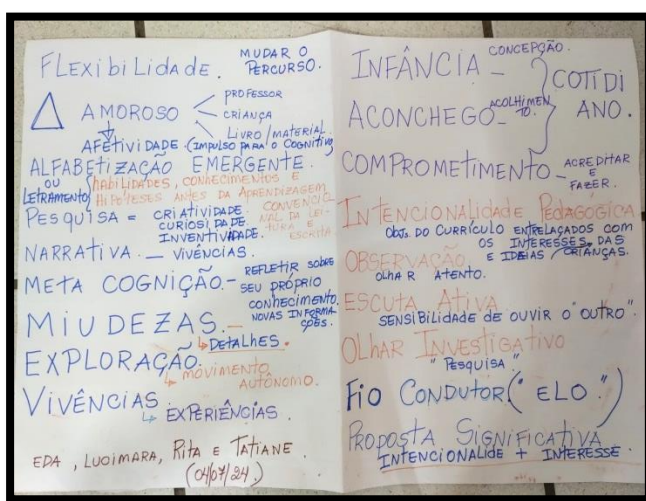 FLEXIBILIDADE. MUDAR O
PERCURSO.
△ AMOROSO PROFESSOR
CRIANÇA
LIVRO/MATERIAL
AFETIVIDADE (IMPULSO PARA O COGNITIVO)
ALFABETIZAÇÃO EMERGENTE.
OU
LETRAMENTO
HABILIDADES, CONHECIMENTOS E
HIPÓTESES ANTES DA APRENDIZAGEM
CONVENCIO
NAL DA LEI-
TURA E
ESCRITA
PESQUISA = CRIATIVIDADE
CURIOSIDADE
INVENTIVIDADE.
NARRATIVA - VIVÊNCIAS.
META COGNIÇÃO - REFLETIR SOBRE
SEU PRÓPRIO
CONHECIMENTO.
NOVAS INFORMA
ÇÕES.
MIUDEZAS -
DETALHES.
EXPLORAÇÃO.
MOVIMENTO
AUTÔNOMO.
VIVÊNCIAS.
EXPERIÊNCIAS.
EDA, LUCIMARA, RITA E TATIANE.
(04/07/24)
INFÂNCIA - CONCEPÇÃO.
ACONCHEGO - ACOLHIMEN
TO.
COTIDI
ANO.
COMPROMETIMENTO - ACREDITAR
E
FAZER.
INTENCIONALIDADE PEDAGÓGICA
OBJS. DO CURRÍCULO ENTRELAÇADOS COM
OS INTERESSES DAS
E IDEIAS CRIANÇAS.
OBSERVAÇÃO
OLHAR ATENTO.
ESCUTA ATIVA
SENSIBILIDADE DE OUVIR O "OUTRO".
OLHAR INVESTIGATIVO
"PESQUISA".
FIO CONDUTOR ("ELO.")
PROPOSTA SIGNIFICATIVA
INTENCIONALIDE + INTERESSE